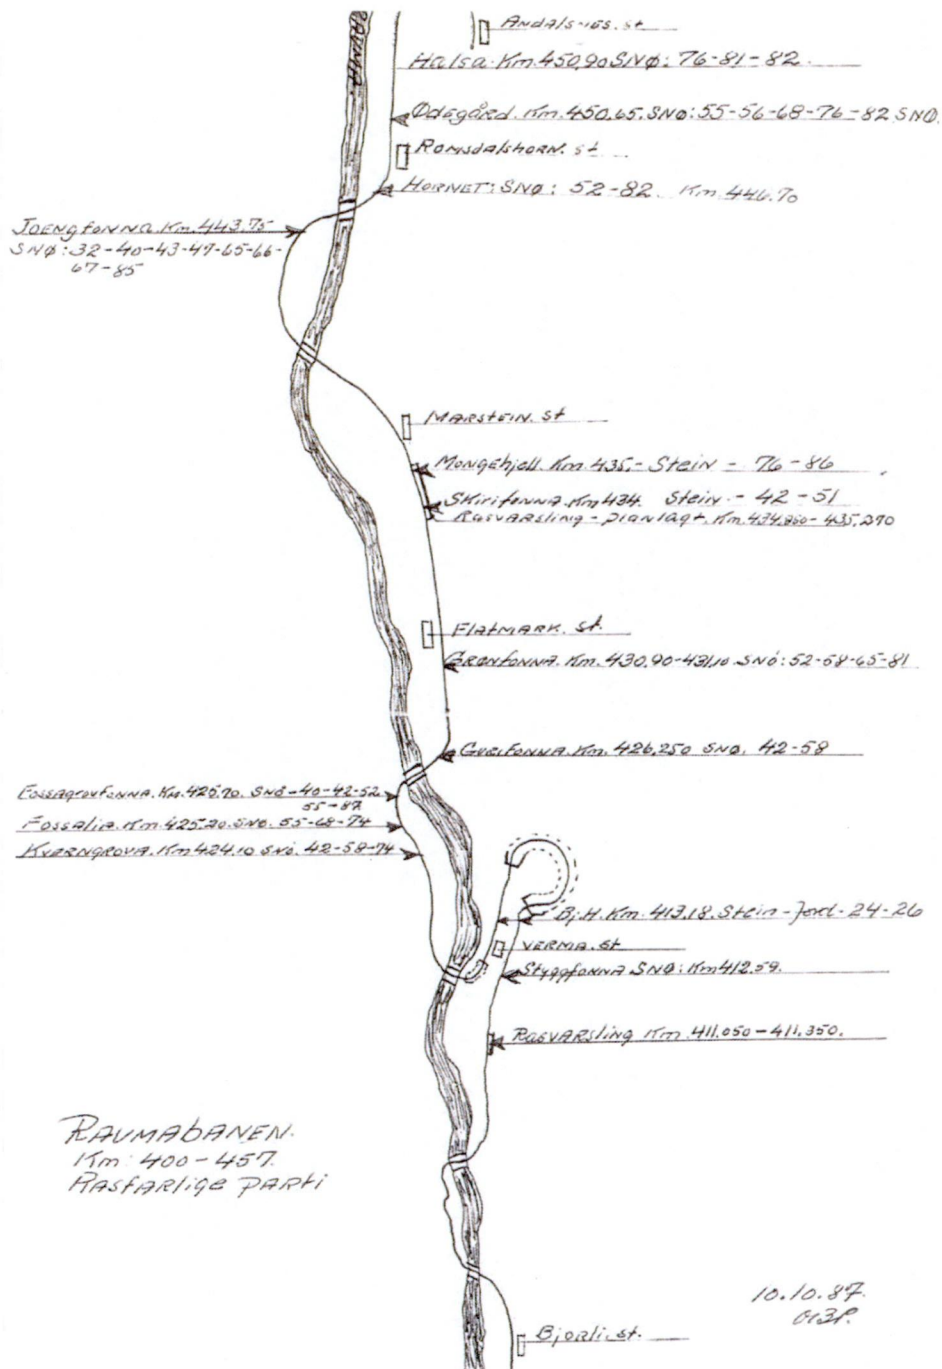 RAUMA.
Åndalsnes. st
Halsa. Km. 450,90 SNØ: 76-81-82.
Ødegård. Km. 450.65. SNØ: 55-56-68-76-82 SNØ.
Romsdalshorn. st
HORNET: SNØ: 52-82. Km. 446.70
Joengfonna. Km. 443.75
SNØ: 32-40-43-47-65-66-
67-85
MARSTEIN. st
Mongehjell. Km. 435,- Stein - 76-86
Skirifonna. Km 434. Stein. - 42-51
Rasvarsling - planlagt. Km. 434,260 - 435,270
FlatMARK. st.
Grønfonna. Km. 430,90-431,10. SNØ: 52-58-65-81
Gurifonna. Km. 426,250 SNØ. 42-58
Fossagrovfonna. Km. 425.70. SNØ-40-42-52
55-87
Fossalia. Km. 425.20. SNØ. 55-68-74
Kverngrova. Km 424.10 SNØ. 42-58-74
Bj. H. Km. 413.18. Stein-Jord-24-26
VERMA. st
Styggfonna SNØ: Km 412.59.
RasVARsling Km. 411.050-411.350.
RAUMAbANEN.
Km: 400-457.
RASfARlige PARti
10.10.87.
Bjorli. st.